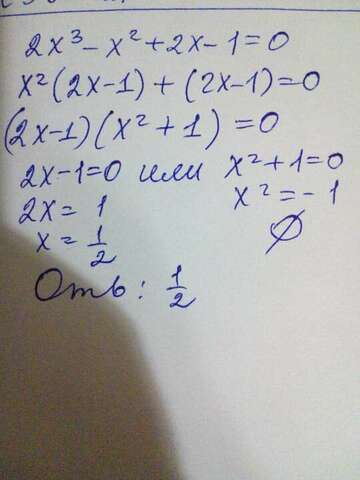 2x³ - x² + 2x - 1 = 0
x²(2x-1) + (2x-1) = 0
(2x-1)(x²+1) = 0
2x-1=0 или x²+1=0
2x = 1 x² = -1
x = 1/2 ∅
Отв: 1/2